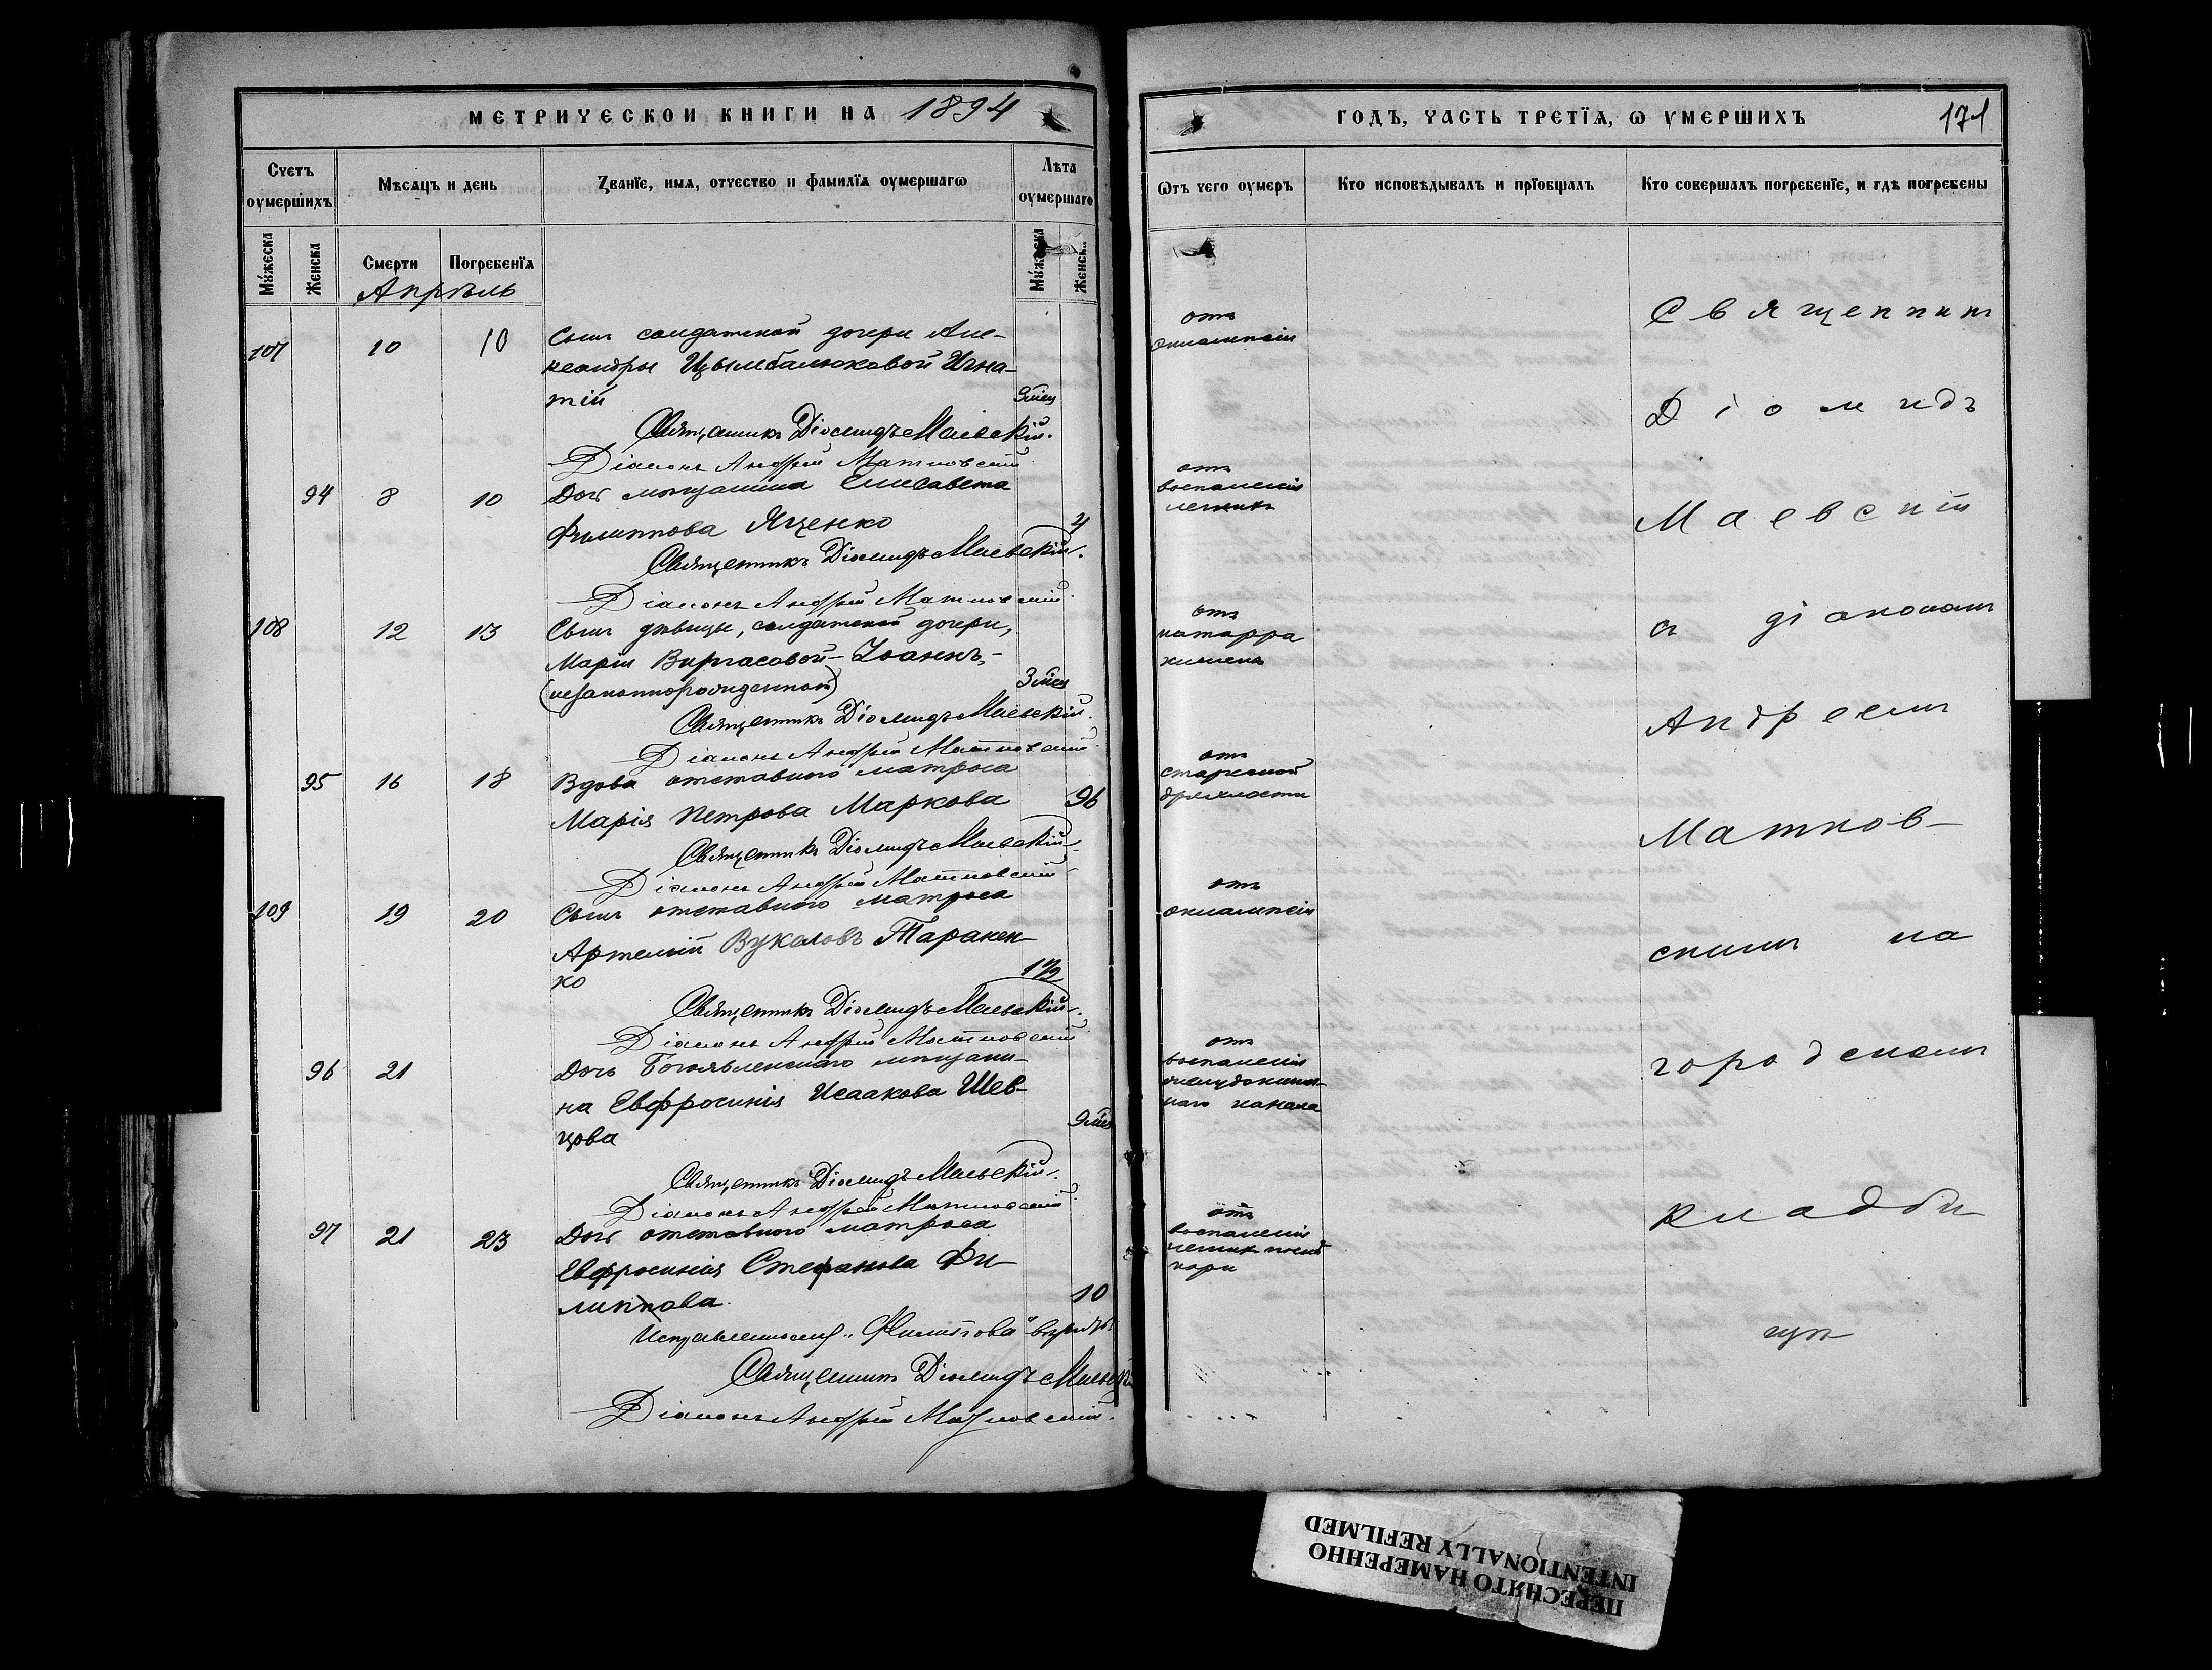 МЕТРИЧЕСКОИ КНИГИ НА 1894
Счетъ оумершихъ
Мѣсяцъ и день
Званїе, имѧ, отчество и фамилїѧ оумершагѡ
Лѣта оумершаго
Мꙋжеска
Женска
Смерти
Погребенїѧ
Мꙋжеска
Женска
Апрѣль
107 10 10 Сынъ солдатской дочери Але-
ксандры Цымбалюковой Игна-
тій 9 мѣс
Священникъ Діомидъ Маевскій.
Діаконъ Андрей Матковскій
94 8 10 Дочь мѣщанина Елисавета
Филиппова Яценко 4
Священникъ Діомидъ Маевскій.
Діаконъ Андрей Матковскій
108 12 13 Сынъ дѣвицы, солдатской дочери,
Маріи Виргасовой - Іоаннъ, -
(незаконнорожденной) 3 мѣс
Священникъ Діомидъ Маевскій.
Діаконъ Андрей Матковскій
95 16 18 Вдова отставного матроса
Марія Петрова Маркова 96
Священникъ Діомидъ Маевскій
Діаконъ Андрей Матковскій
109 19 20 Сынъ отставного матроса
Артемій Вуколовъ Таранен-
ко 1½
Священникъ Діомидъ Маевскій.
Діаконъ Андрей Матковскій
96 21 Дочь Богоявленскаго мѣщани-
на Евфросинія Исаакова Шев-
цова 9 мѣс
Священникъ Діомидъ Маевскій.
Діаконъ Андрей Матковскій
97 21 23 Дочь отставного матроса
Евфросинія Стефанова Фи-
липпова. 10
"Филиппова"
Священникъ Діомидъ Маевскій
Діаконъ Андрей Матковскій.
ГОДЪ, ЧАСТЬ ТРЕТЇѦ, Ѡ УМЕРШИХЪ 171
Ѿтъ чего оумеръ
Кто исповѣдывалъ и прїобщалъ
Кто совершалъ погребенїе, и гдѣ погребены
отъ
эклампсіи
отъ
воспаленія
легкихъ
отъ
катарра
кишекъ
отъ
старческой
дряхлости
отъ
эклампсіи
отъ
воспаленія
желудокишеч-
наго канала
отъ
воспаленія
легкихъ послѣ
кори
Священникъ
Діомидъ
Маевскій
съ діакономъ
Андреемъ
Матков-
скимъ на
городскомъ
кладби
щѣ
ПЕРЕСНЯТО НАМЕРЕННО
INTENTIONALLY REFILMED